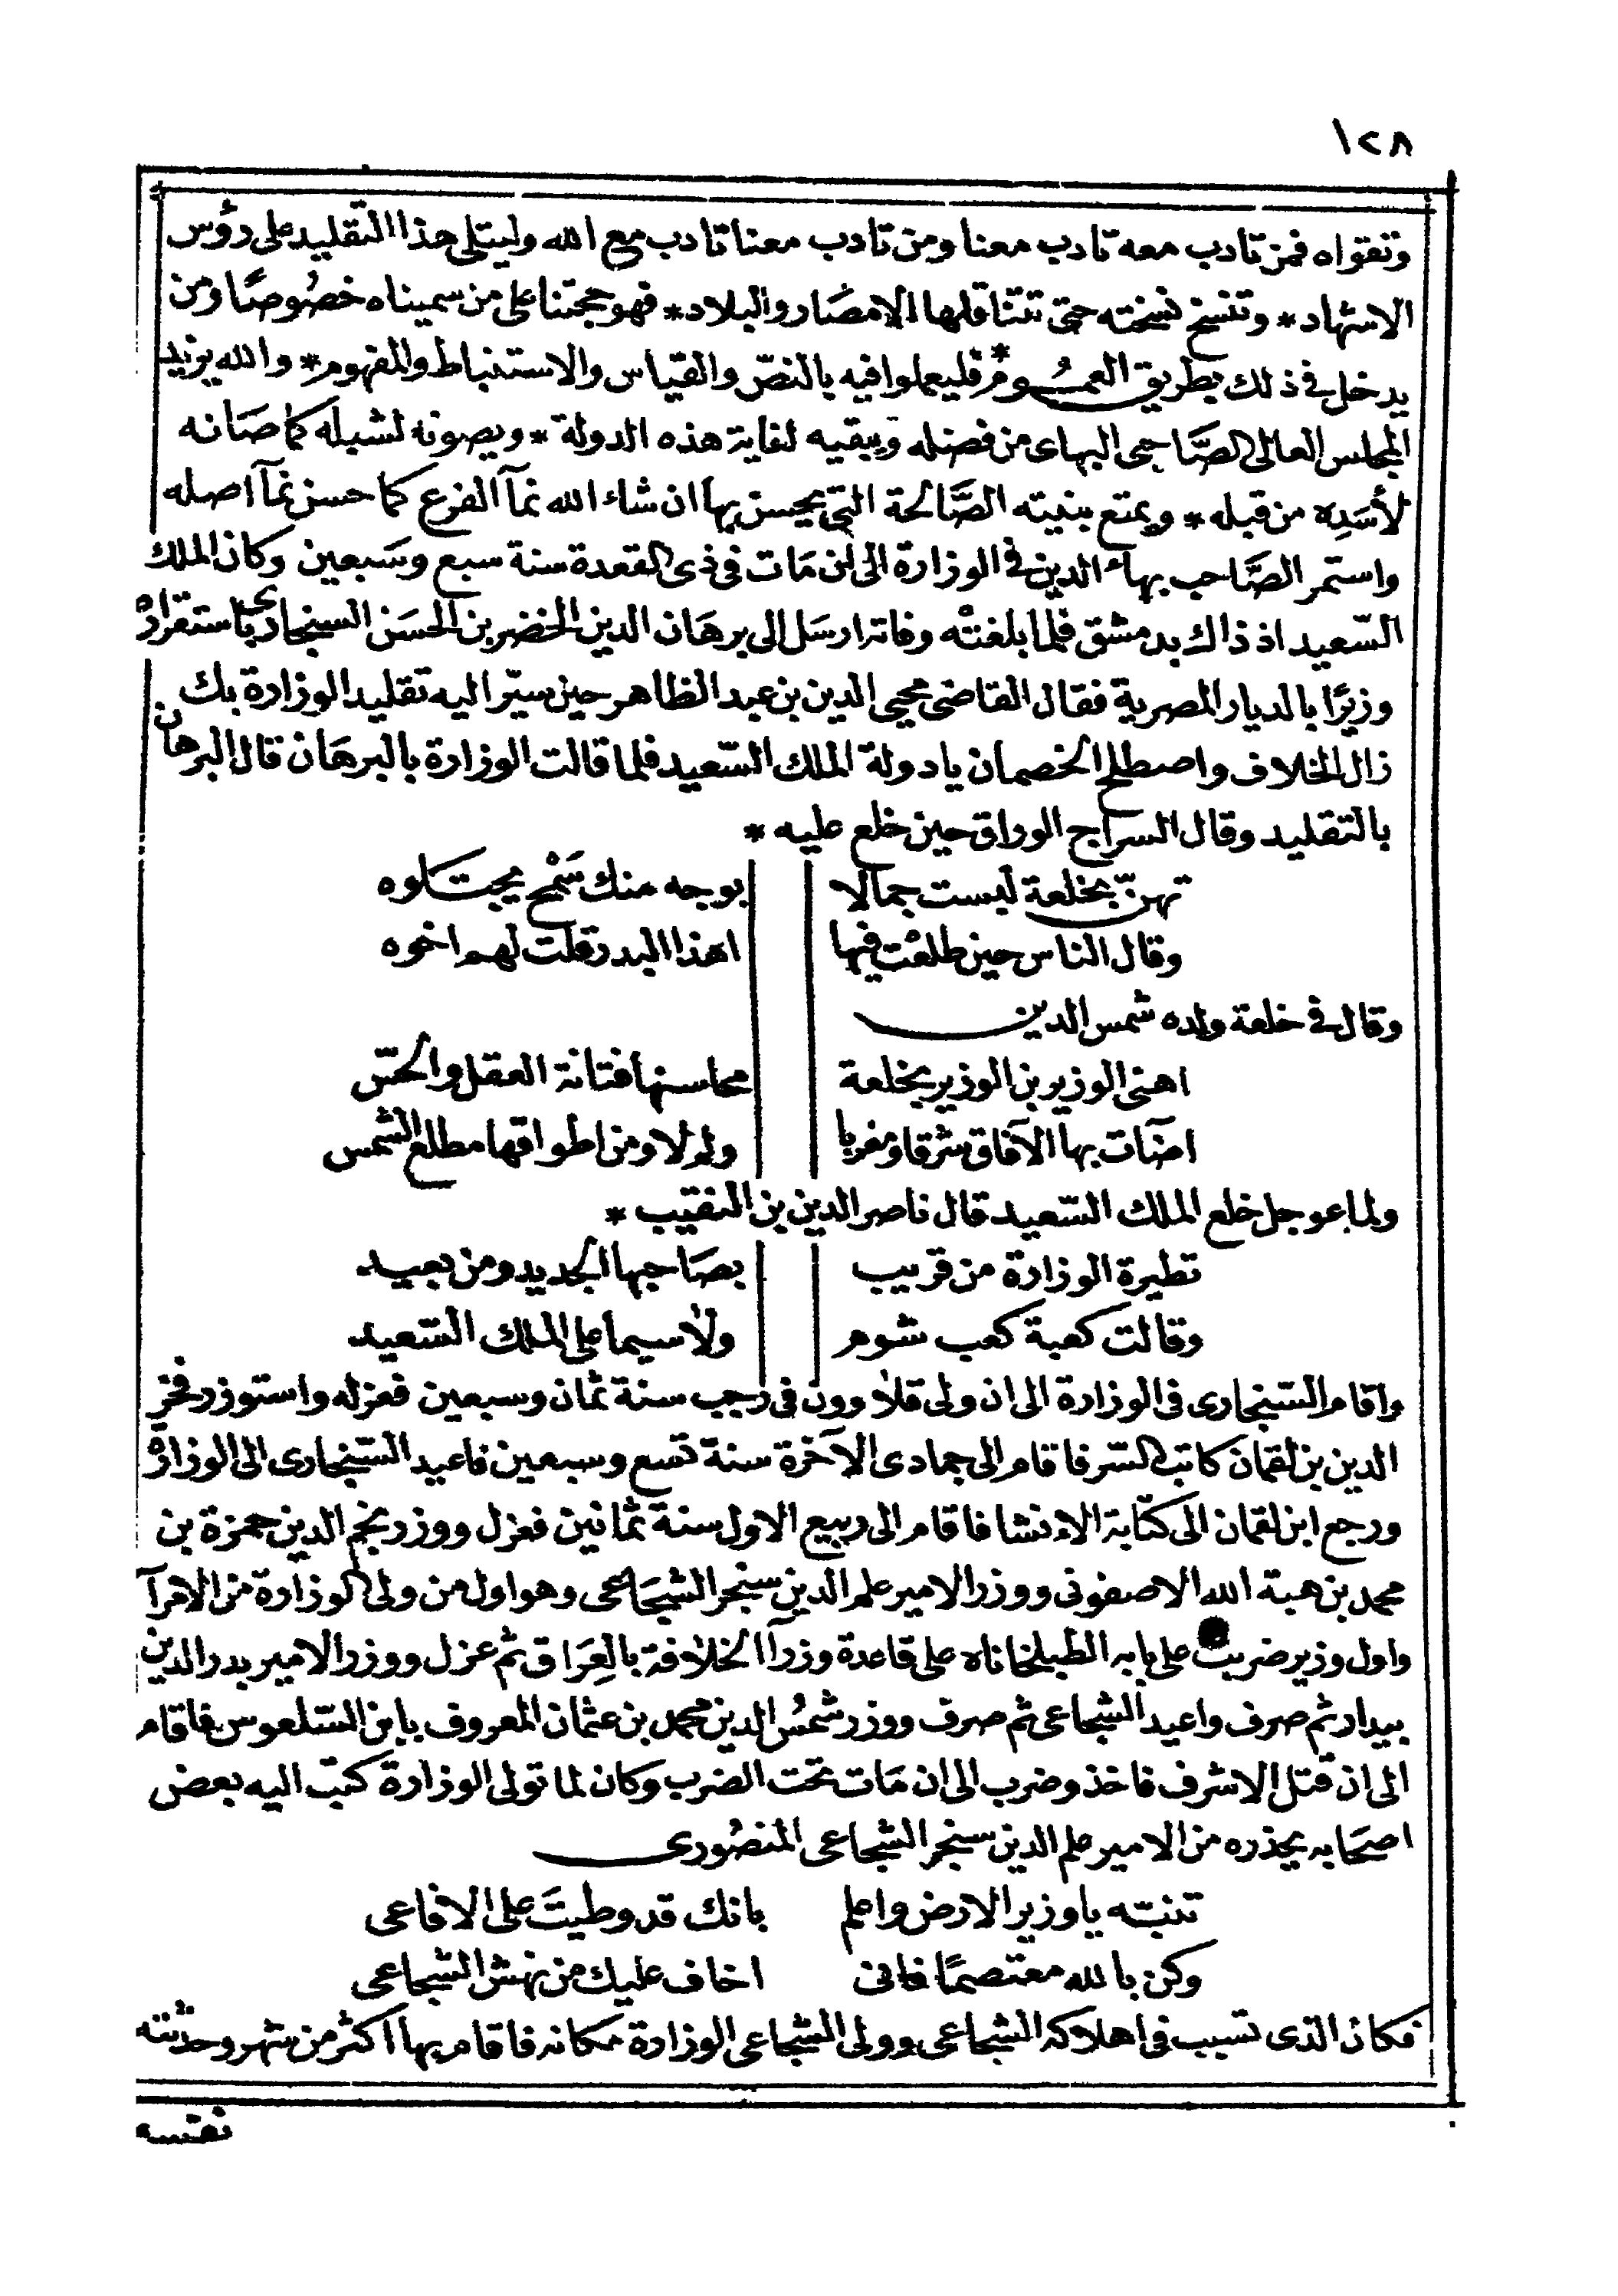 ١٢٨
وتقواه فمن تادب معه تادب معنا ومن تادب معنا تادب مع الله وليتلى هذا التقليد على رؤس
الاشهاد * وتنسخ نسخته حتى تتناقلها الامصَار والبلاد * فهو حجتنا على من سميناه خصُوصًا ومن
يدخل فى ذلك بطريق العمُوم * فليعملوا فيه بالنصّ والقياس والاستنباط والمفهوم * والله يزيد
المجلس العالى الصَّاحبى البهاى من فضله ويبقيه لغاية هذه الدولة * ويصونه لشبله كما صَانه
لأسَدِه من قبله * ويمتع بنيته الصَّالحة التى يحسن بها ان شاء الله نمآ الفرع كما حسن نمآ اصله
واستمر الصَّاحب بهاء الدين فى الوزارة الى ان مَات فى ذى القعدة سنة سبع وسَبعين وكان الملك
السّعيد اذ ذاك بدمشق فلما بلغته وفاته ارسَل الى برهَان الدين الخضر بن الحسَن السنجارى باستقراره
وزيرًا بالديار المصرية فقال القاضى محيى الدين بن عبد الظاهر حين سيّر اليه تقليد الوزارة بك
زال الخلاف واصطلح الخصمان يا دولة الملك السّعيد فلما قالت الوزارة بالبرهَان قال البرهان
بالتقليد وقال السراج الوراق حين خلع عليه *
تهنّ بخلعة لبست جمالا بوجه منك سَمْح يجتَلوه
وقال الناس حين طلعْت فيها اهذا البدر قلت لهم اخوه
وقال فى خلعة ولده شمس الدين
اهنى الوزير بن الوزير بخلعة محاسنها فتانة العقل والحسّ
اضآت بها الآفاق شرقا ومغربا ولم لا ومن اطواقها مطلع الشمس
ولما عوجل خلع الملك السّعيد قال ناصر الدين بن النقيب *
تطيرة الوزارة من قريب بصَاحبها الجديد ومن بعيد
وقالت كعبة كعب شوم ولا سيما على الملك السّعيد
واقام السّنجارى فى الوزارة الى ان ولى قلاوون فى رجب سنة ثمان وسبعين فعزله واستوزر فخر
الدين بن لقمان كاتب السّر فاقام الى جمادى الآخرة سنة تسع وسبعين فاعيد السّنجارى الى الوزارة
ورجع ابن لقمان الى كتابة الانشا فاقام الى ربيع الاول سنة ثمانين فعزل ووزر نجم الدين حمزة بن
محمد بن هبة الله الاصفونى ووزر الامير علم الدين سنجر الشجَاعى وهو اول من ولى الوزارة من الامرآ
واول وزير ضربت على بابه الطبلخاناه على قاعدة وزرآ الخلافة بالعِرَاق ثم عزل ووزر الامير بدر الدين
بيدار ثم صرف واعيد الشجاعى ثم صرف ووزر شمسُ الدين محمد بن عثمان المعروف بابن السّلعوس فاقام
الى ان قتل الاشرف فاخذ وضرب الى ان مَات تحت الضرب وكان لما تولى الوزارة كتب اليه بعض
اصحَابه يحذره من الامير علم الدين سنجر الشجاعى المنصُورى
تنبّه يا وزير الارض واعلم بانك قد وطيتَ على الافاعى
وكن بالله معتصمًا فانى اخاف عليك من نهش الشجاعى
فكان الذى تسبب فى اهلاكه الشجاعى وولى الشجاعى الوزارة مكانه فاقام بها اكثر من شهر وحدثته
نفسه